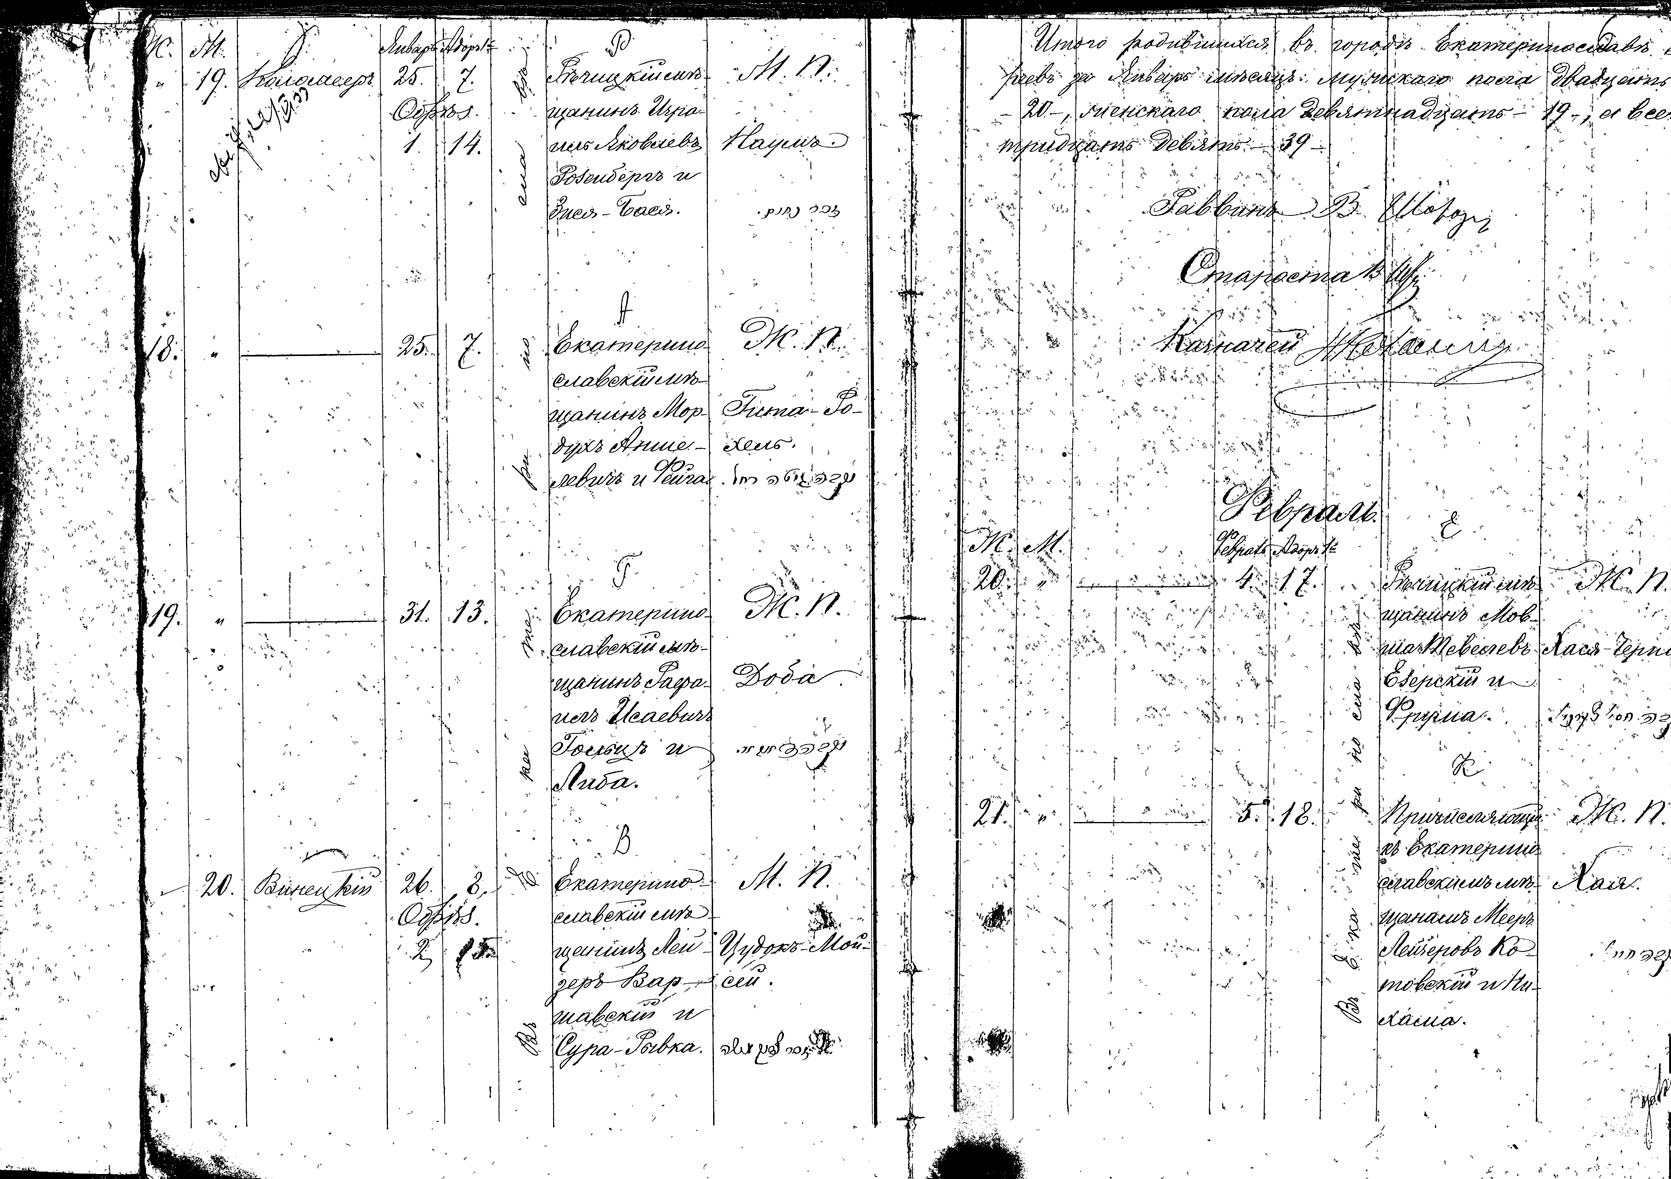 Ж. М. Январь Адоръ 1й
" 19. 25. 7.
Обрѣз.
1. 14.
Р
Рѣчицкій мѣ-
щанинъ Изра-
иль Яковлевъ
Розенбергъ и
Зися-Бася.
М. П.
Наумъ.
זכר נחום
18. " 25. 7.
А
Екатерино-
славскій мѣ-
щанинъ Мор-
духъ Анше-
левичъ и Фейга
Ж. П.
Гита-Ро-
хель.
נקבה גיטה רחל
19. " 31. 13.
Г
Екатерино-
славскій мѣ-
щанинъ Рафа-
илъ Исаевичъ
и
Либа.
Ж. П.
Доба
20. Винецкій 26. 8.
Обрѣз.
2 15.
В
Екатерино-
славскій мѣ-
щанинъ Лей-
зеръ Вар-
шавскій и
Сура-Рывка.
М. П.
Цудокъ-Мой-
сей.
זכר משה
Въ Екатеринославѣ
Итого родившихся въ городѣ Екатеринославѣ
реевъ за Январь мѣсяцъ: мужскаго пола двадцать
- 20 -, женскаго пола девятнадцать - 19 -, а все
тридцать девять - 39 -
Раввинъ В. Шо
Староста
Казначей
Февраль.
Ж. М. Февраль Адоръ 1й
20. " 4. 17.
Е
Рѣчицкій мѣ-
щанинъ Мов-
ша Тевелевъ
Езерскій и
Фрума.
Ж. П.
Хася-Черна
21. " 5. 18.
К
Причисляющ
къ Екатерино-
славскимъ мѣ-
щанамъ Мееръ
Лейзеровъ Ко-
товскій и Ни-
хама.
Ж. П.
Хая.
Въ Екатеринославѣ